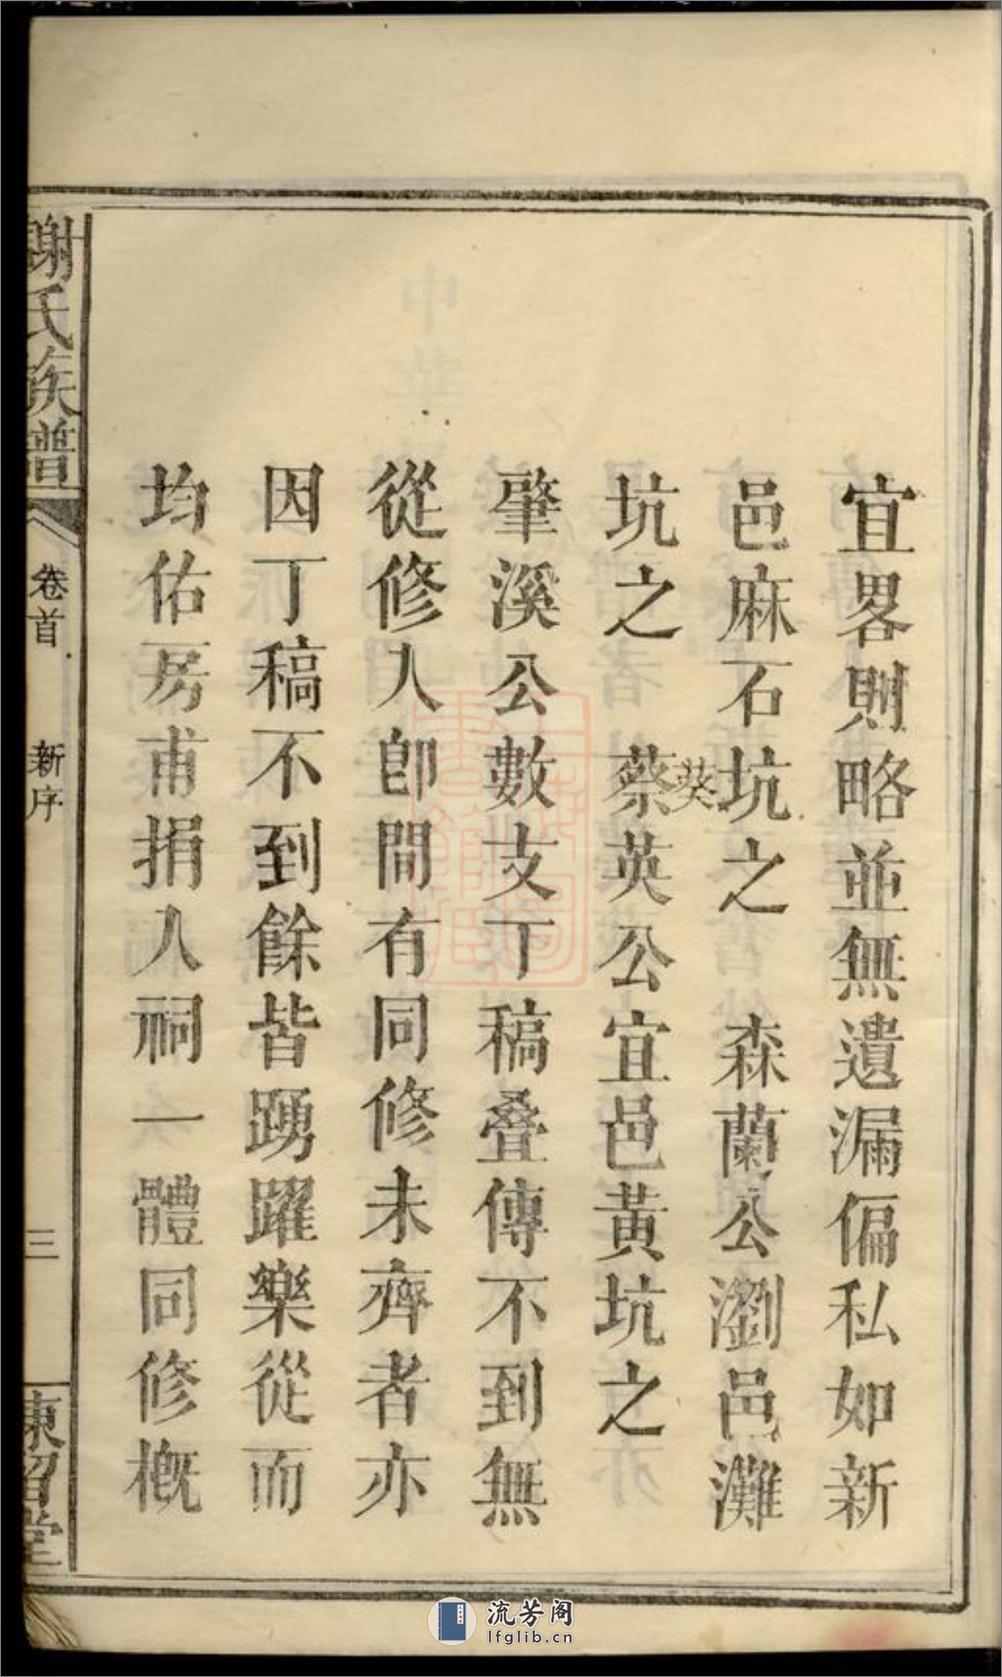 宜畧則略並無遺漏偏私如新
邑麻石坑之　森蘭公瀏邑灘
坑之　蔡英公宜邑黃坑之
葵
肇溪公數支丁稿叠傳不到無
從修入卽間有同修未齊者亦
因丁稿不到餘皆踴躍樂從而
均佑房甫捐入祠一體同修概
謝氏族譜
卷首
新序
三
東留堂
流芳阁
lfglib.cn